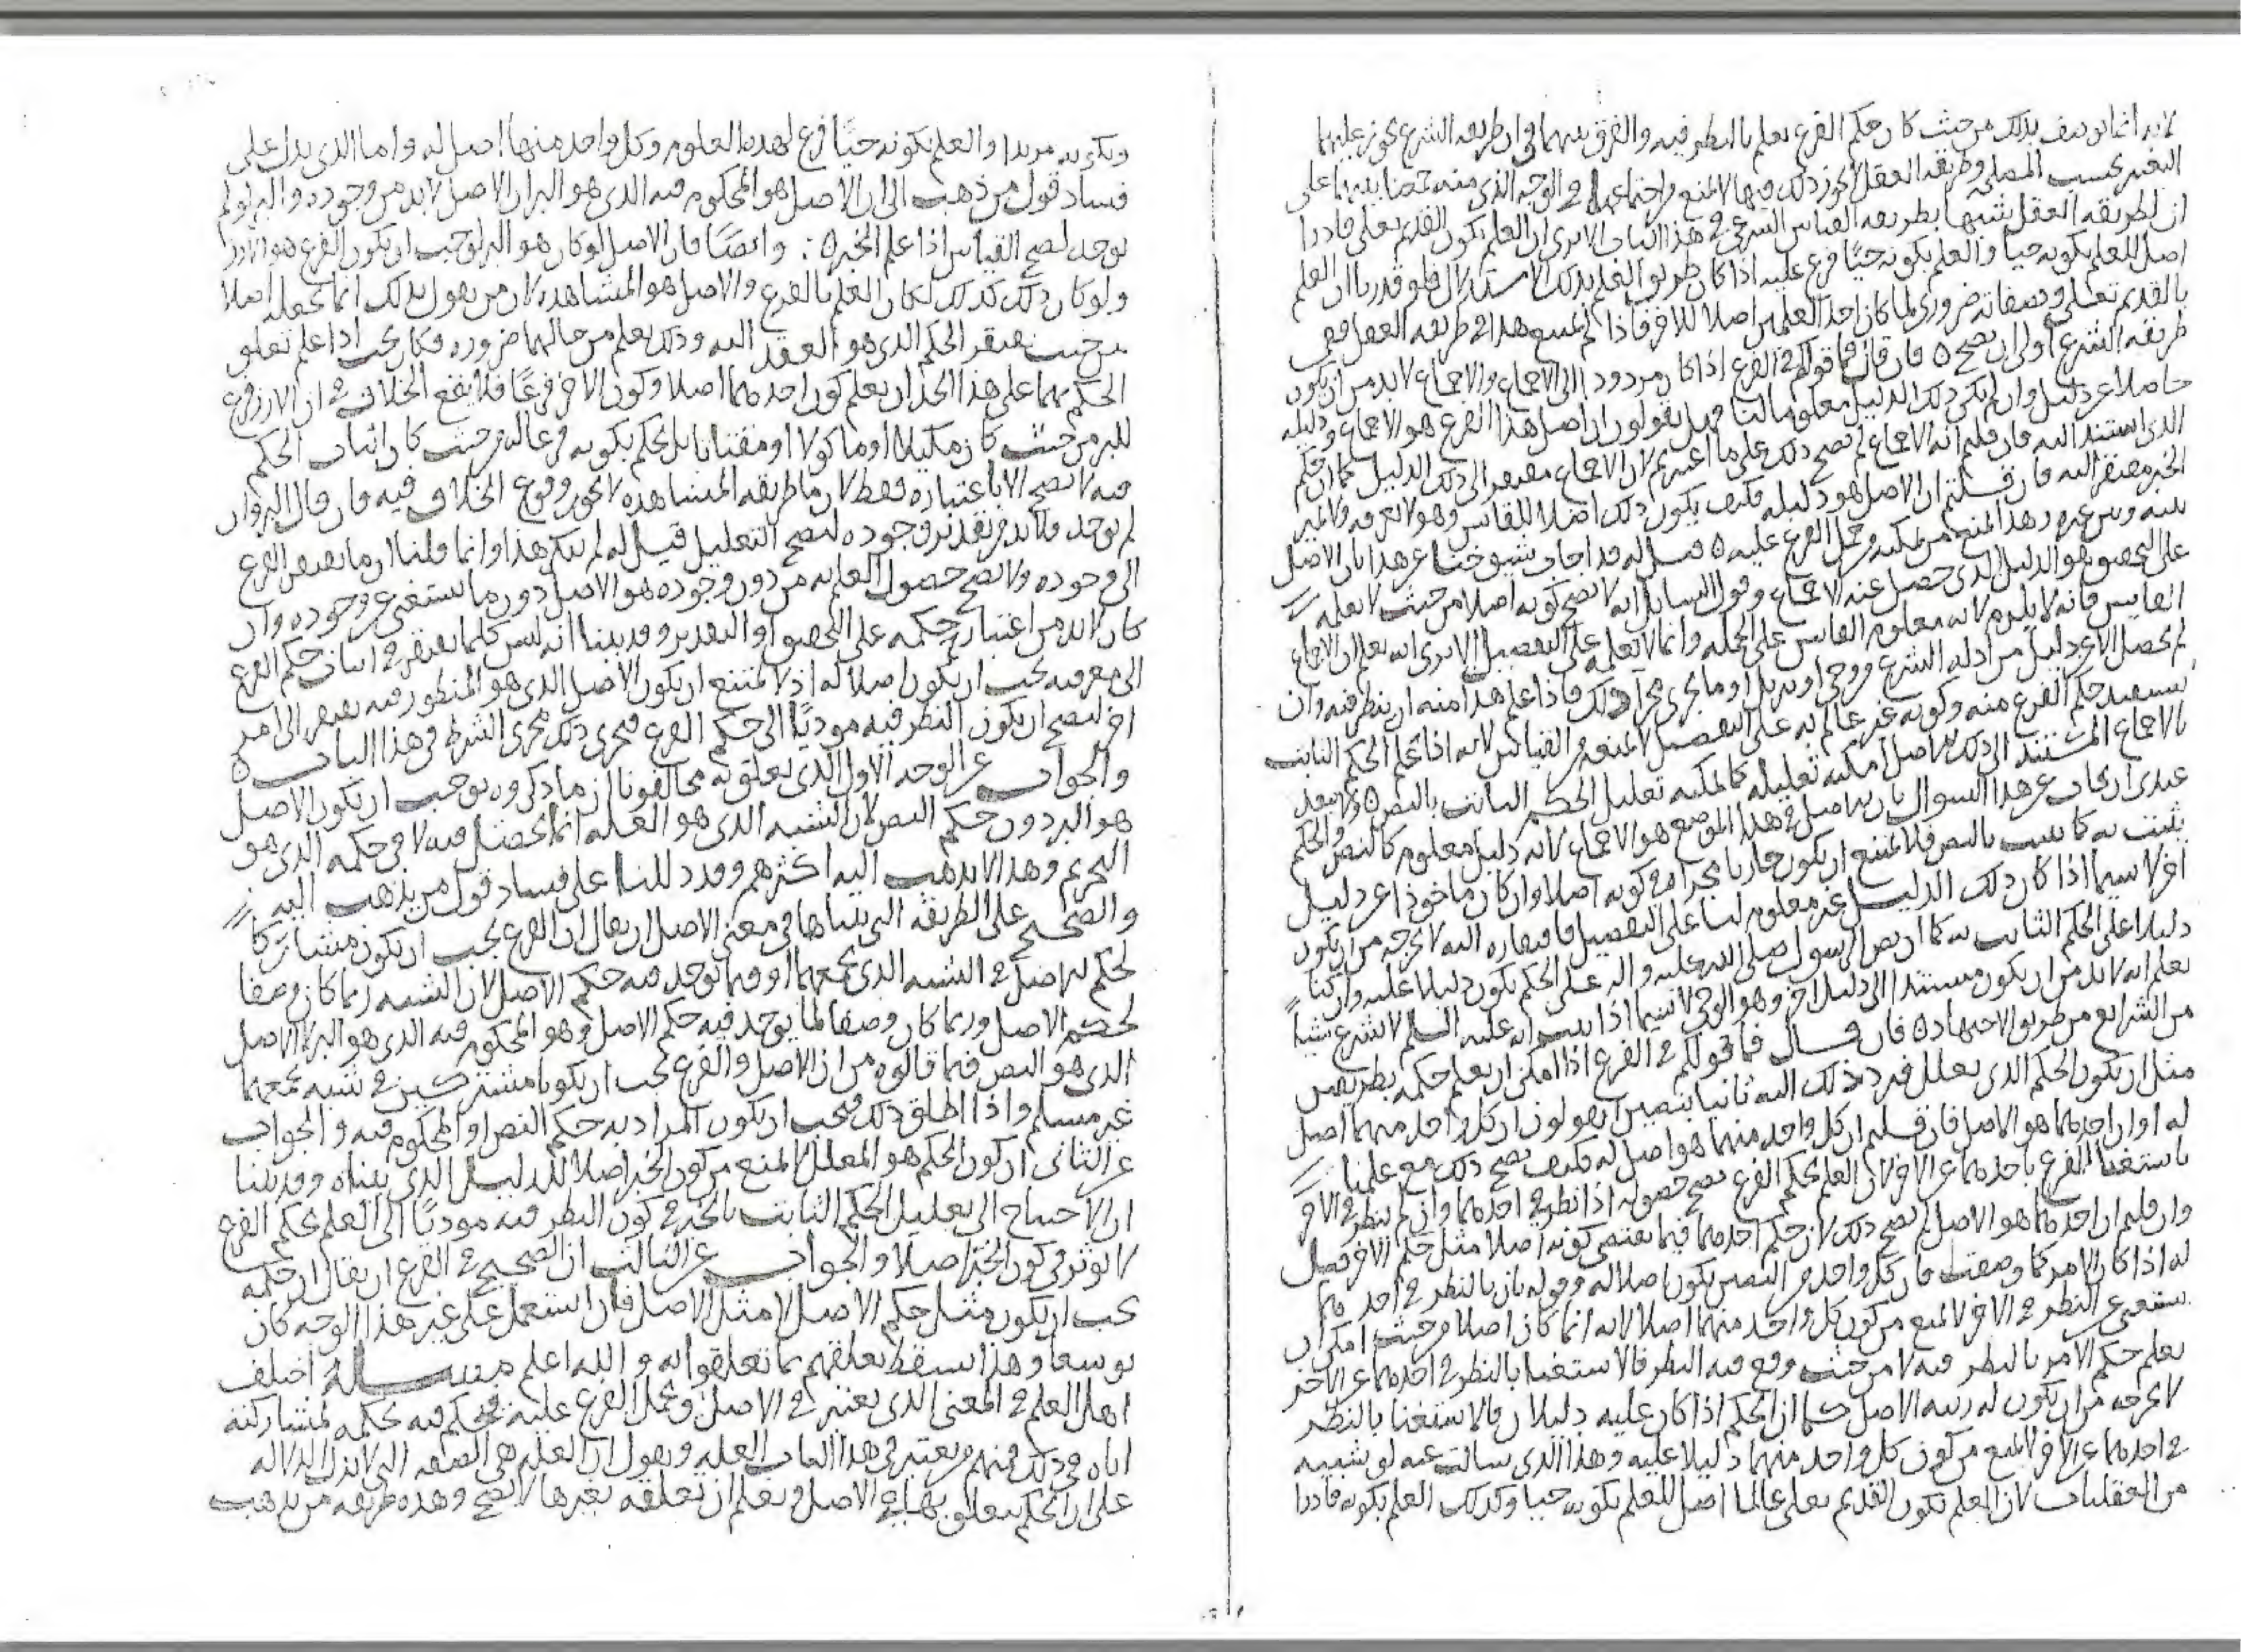 لانه انما توصف بذلك من حيث كان حكم الفرع يعلم بالنظر فيه والفرق بينهما في ان طريقه الشرع يجوز عليها
التغير بحسب المصلحه وطريقه العقل لا يجوز ذلك فيها لا يمنع من اجتماعهما في الوجه الذي منه جمعنا بينهما على
ان لطريقه العقل شبها بطريقه القياس الشرعي في هذا الباب الا ترى ان العلم بكون القديم تعالى قادرا
اصل للعلم بكونه حيا والعلم بكونه حيا فرع عليه اذا كان طريق العلم بذلك الاستدلال فلو قدرنا ان العلم
بالقديم تعالى وصفاته ضروري لما كان احد العلمين اصلا للاخر فاذا لم يمتنع هذا في طريقه العقل ففي
طريقه الشرع اولى ان يصح ه فان قال فما قولكم في الفرع اذا كان مردودا الى الاجماع والاجماع لا بد من ان يكون
حاصلا عن دليل وان لم يكن ذلك الدليل معلوما لنا هل يقولون ان اصل هذا الفرع هو الاجماع او دليله
الذي استند اليه فان قلتم انه الاجماع لم يصح ذلك على ما اعتبرتم لان الاجماع مفتقر الى ذلك الدليل كما ان حكم
الخبر مفتقر اليه فان قلتم ان الاصل هو دليله فكيف يكون ذلك اصلا للقايس وهو لا يعرفه ولا يميز
بينه وبين غيره وهذا يمنع من تمكنه من حمل الفرع عليه ه قيل له قد اجاب شيوخنا عن هذا بان الاصل
على التحقيق هو الدليل الذي حصل عنه الاجماع وقول السايل انه لا يصح كونه اصلا من حيث لا يعلمه
القايس فانه لا يلزم لانه معلوم للقايس على الجمله وانما لا يعلمه على التفصيل الا ترى انه يعلم ان الاجماع
لم يحصل الا عن دليل من ادله الشرع من وحي او تنزيل او ما يجري مجرى ذلك فاذا علم هذا امنه ان ينظر فيه وان
يستفيد حكم الفرع منه وكونه غير عالم به على التفصيل لا يمنع من القياس لانه اذا علم الحكم الثابت
بالاجماع المستند الى ذلك الاصل امكنه تعليله كما يمكنه تعليل الحكم الثابت بالنص ه ولا يبعد
عندي ان يجاب عن هذا السوال بان الاصل في هذا الموضع هو الاجماع لانه دليل معلوم كالنص والحكم
يثبت به كما يثبت بالنص فلا يمتنع ان يكون جاريا مجراه في كونه اصلا وان كان ماخوذا عن دليل
اخر لا سيما اذا كان ذلك الدليل غير معلوم لنا على التفصيل فافتقاره اليه لا يخرجه من ان يكون
دليلا على الحكم الثابت به كما ان نص الرسول صلى الله عليه واله على الحكم يكون دليلا عليه وان كنا
نعلم انه لا بد من ان يكون مستندا الى دليل اخر وهو الوحي لا سيما اذا ثبت انه عليه السلم لا شرع شيئا
من الشرايع من طريق الاجتهاد ه فان قال فما قولكم في الفرع اذا امكن ان يعلم حكمه بطريقين
مثل ان يكون الحكم الذي يعلل فيرد ذلك اليه ثابتا بنصين ايقولون ان كل واحد منهما اصل
له او ان احدهما هو الاصل فان قلتم ان كل واحد منهما هو اصل له فكيف يصح ذلك مع علمنا
باستغنا الفرع باحدهما عن الاخر لان العلم بحكم الفرع يصح حصوله اذا نظر في احدهما وان لم ينظر في الاخر
وان قلتم ان احدهما هو الاصل لم يصح ذلك لان حكم احدهما فيما يقتضي كونه اصلا مثل حكم الاخر قيل
له اذا كان الامر كما وصفت فان كل واحد من النصين يكون اصلا له وقوله بان بالنظر في احدهما
يستغني عن النظر في الاخر لا يمنع من كون كل واحد منهما اصلا لانه انما كان اصلا من حيث امكن ان
يعلم حكم الامر بالنظر فيه لا من حيث وقع فيه النظر فالاستغنا بالنظر في احدهما عن الاخر
لا يخرجه من ان يكون له رتبه الاصل كما ان الحكم اذا كان عليه دليلان فالاستغنا بالنظر
في احدهما عن الاخر لا يمنع من كون كل واحد منهما دليلا عليه وهذا الذي سالت عنه له شبيه
من العقليات لان العلم بكون القديم تعالى عالما اصل للعلم بكونه حيا وكذلك العلم بكونه قادرا
وبكونه مريدا والعلم بكونه حيا فرع لهذه العلوم وكل واحد منها اصل له واما الذي يدل على
فساد قول من ذهب الى ان الاصل هو المحكوم فيه الذي هو البر ان الاصل لا بد من وجوده والبر لو لم
يوجد لصح القياس اذا علم الخبر ه وايضا فان الاصل لو كان هو البر لوجب ان يكون الفرع هو الارز
ولو كان ذلك كذلك لكان العلم بالفرع والاصل هو المشاهده لان من يقول بذلك انما يجعله اصلا
من حيث يفتقر الحكم الذي هو العقد اليه وذلك يعلم من حالهما ضروره فكان يجب اذا علم تعلق
الحكم بهما على هذا الحد ان يعلم كون احدهما اصلا وكون الاخر فرعا فلا يقع الخلاف في ان الارز فرع
للبر من حيث كان مكيلا او ماكولا او مقتاتا بل يحكم بكونه فرعا له من حيث كان اثبات الحكم
فيه لا يصح الا باعتباره فقط لان ما طريقه المشاهده لا يجوز وقوع الخلاف فيه فان قال البر وان
لم يوجد فلا بد من تقدير وجوده ليصح التعليل قيل له لم ننكر هذا وانما قلنا ان ما يفتقر الفرع
الى وجوده ولا يصح حصول العلم به من دون وجوده هو الاصل دون ما يستغني عن وجوده وان
كان لا بد من اعتبار حكمه على التحقيق او التقدير وقد بينا انه ليس كلما يفتقر في اثبات حكم الفرع
الى معرفته يجب ان يكون اصلا له اذ لا يمتنع ان يكون الاصل الذي هو المنظور فيه يفتقر الى امر
اخر ليصح ان يكون النظر فيه موديا الى حكم الفرع فيجري ذلك مجرى الشرط في هذا الباب ه
والجواب عن الوجه الاول الذي يتعلق به مخالفونا ان ما ذكروه يوجب ان يكون الاصل
هو البر دون حكم النص لان الشبه الذي هو العله انما يحصل فيه لا في حكمه الذي هو
التحريم وهذا لا يذهب اليه اكثرهم وقد دللنا على فساد قول من يذهب اليه
والصحيح على الطريقه التي بيناها في معنى الاصل ان يقال ان الفرع يجب ان يكون مشاركا
لحكم الاصل في الشبه الذي يجمعهما او فيما يوجد فيه حكم الاصل لان الشبه ربما كان وصفا
لحكم الاصل وربما كان وصفا لما يوجد فيه حكم الاصل وهو المحكوم فيه الذي هو البر لا الاصل
الذي هو النص فيما قالوه من ان الاصل والفرع يجب ان يكونا مشتركين في شبه يجمعهما
غير مسلم واذا اطلق ذلك فيجب ان يكون المراد به حكم النص او المحكوم فيه والجواب
عن الثاني ان كون الحكم هو المعلل لا يمنع من كون الخبر اصلا للدليل الذي بيناه وقد بينا
ان الاحتياج الى تعليل الحكم الثابت بالخبر في كون النظر فيه موديا الى العلم بحكم الفرع
لا يوثر في كون الخبر اصلا والجواب عن الثالث ان الصحيح في الفرع ان يقال ان حكمه
يجب ان يكون مثل حكم الاصل لا مثل الاصل فان استعمل على غير هذا الوجه كان
توسعا وهذا يسقط تعلقهم بما تعلقوا به والله اعلم مسـالـه اختلف
اهل العلم في المعنى الذي يعتبر في الاصل ويحمل الفرع عليه فيحكم فيه بحكمه لمشاركته
اياه في ذلك فمنهم من يعتبر في هذا الباب العله ويقول ان العله هي الصفه التي لابد الدلاله
على ان الحكم يتعلق بها في الاصل ويعلم ان تعلقه بغيرها لا يصح وهذه طريقه من يذهب